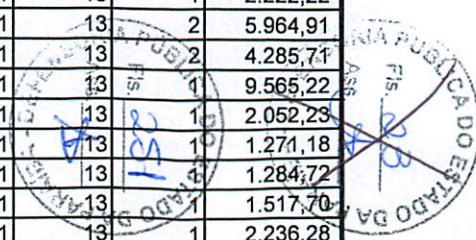 1 13 1 2.222,22
1 13 2 5.964,91
1 13 2 4.285,71
1 13 9.565,22
1 13 1 2.052,23
1 13 1 1.271,18
1 13 1.284,72
1 13 1 1.517,70
1 13 1 2.236,28
DEFENSORIA PÚBLICA DO ESTADO DA PARAÍBA
Fls 251
PÚBLICA DO ESTADO DA
Fls 23
Ass